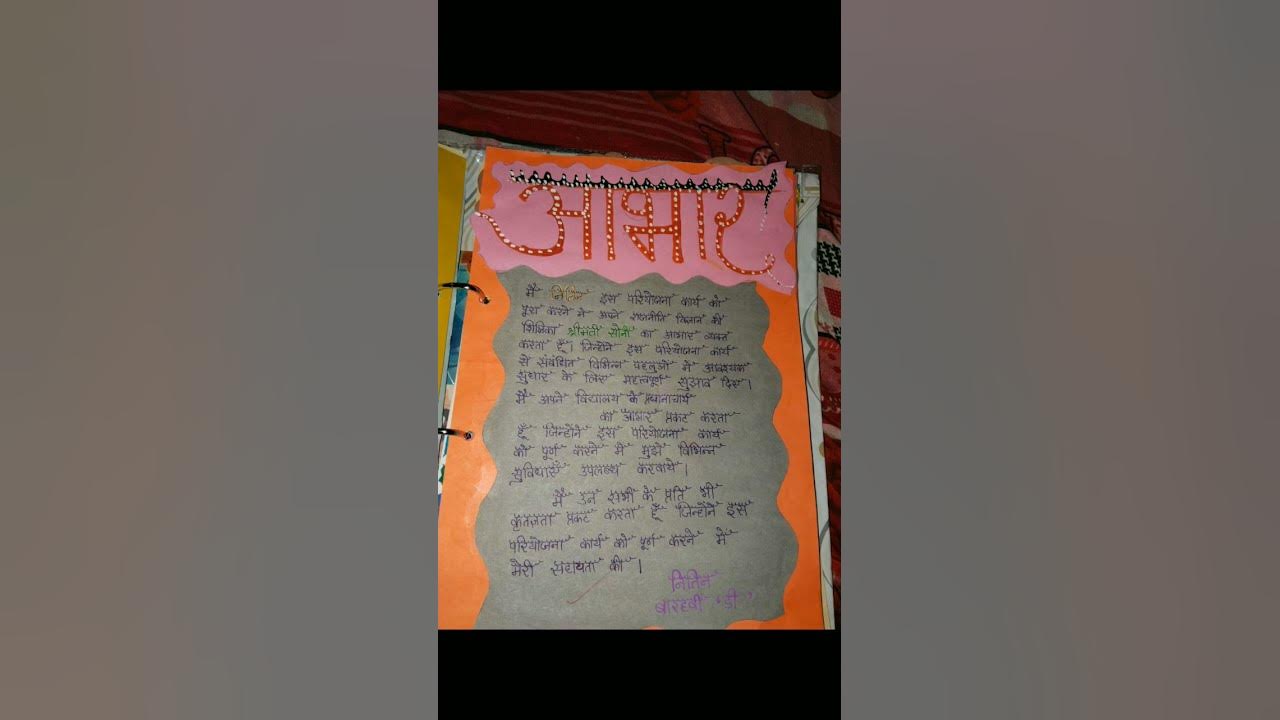 आभार
मैं नितिन इस परियोजना कार्य को
पूरा करने में अपने राजनीति विज्ञान की
शिक्षिका श्रीमती सोनी का आभार व्यक्त
करता हूँ। जिन्होंने इस परियोजना कार्य
से संबंधित विभिन्न पहलुओं में आवश्यक
सुधार के लिए महत्वपूर्ण सुझाव दिए।
मैं अपने विद्यालय के प्रधानाचार्य
का आभार प्रकट करता
हूँ जिन्होंने इस परियोजना कार्य
को पूर्ण करने में मुझे विभिन्न
सुविधाएँ उपलब्ध करवाये।
मैं उन सभी के प्रति भी
कृतज्ञता प्रकट करता हूँ जिन्होंने इस
परियोजना कार्य को पूर्ण करने में
मेरी सहायता की।
नितिन
बारहवीं 'डी'